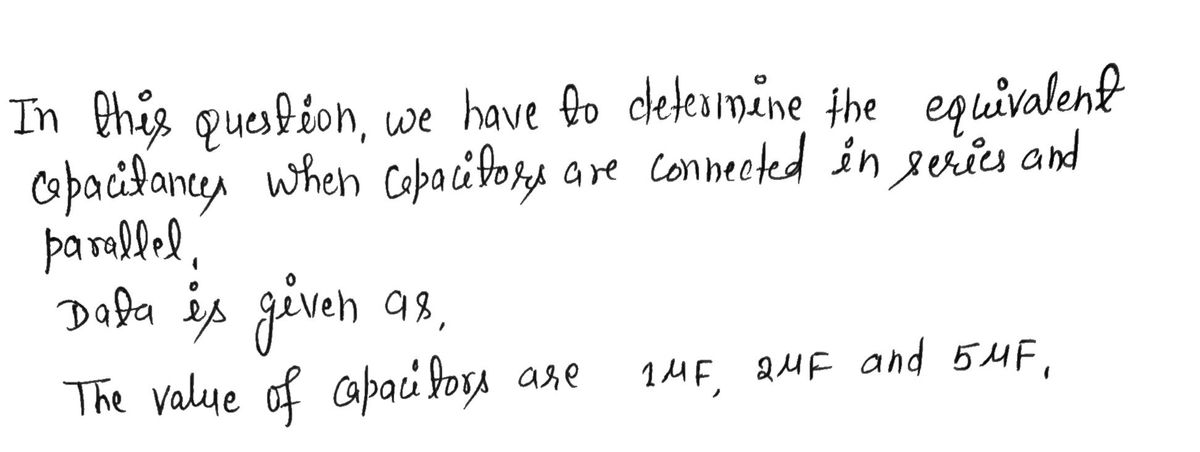 In this question, we have to determine the equivalent
capacitances when capacitors are connected in series and
parallel.
Data is given as,
The value of capacitors are 1μF, 2μF and 5μF.